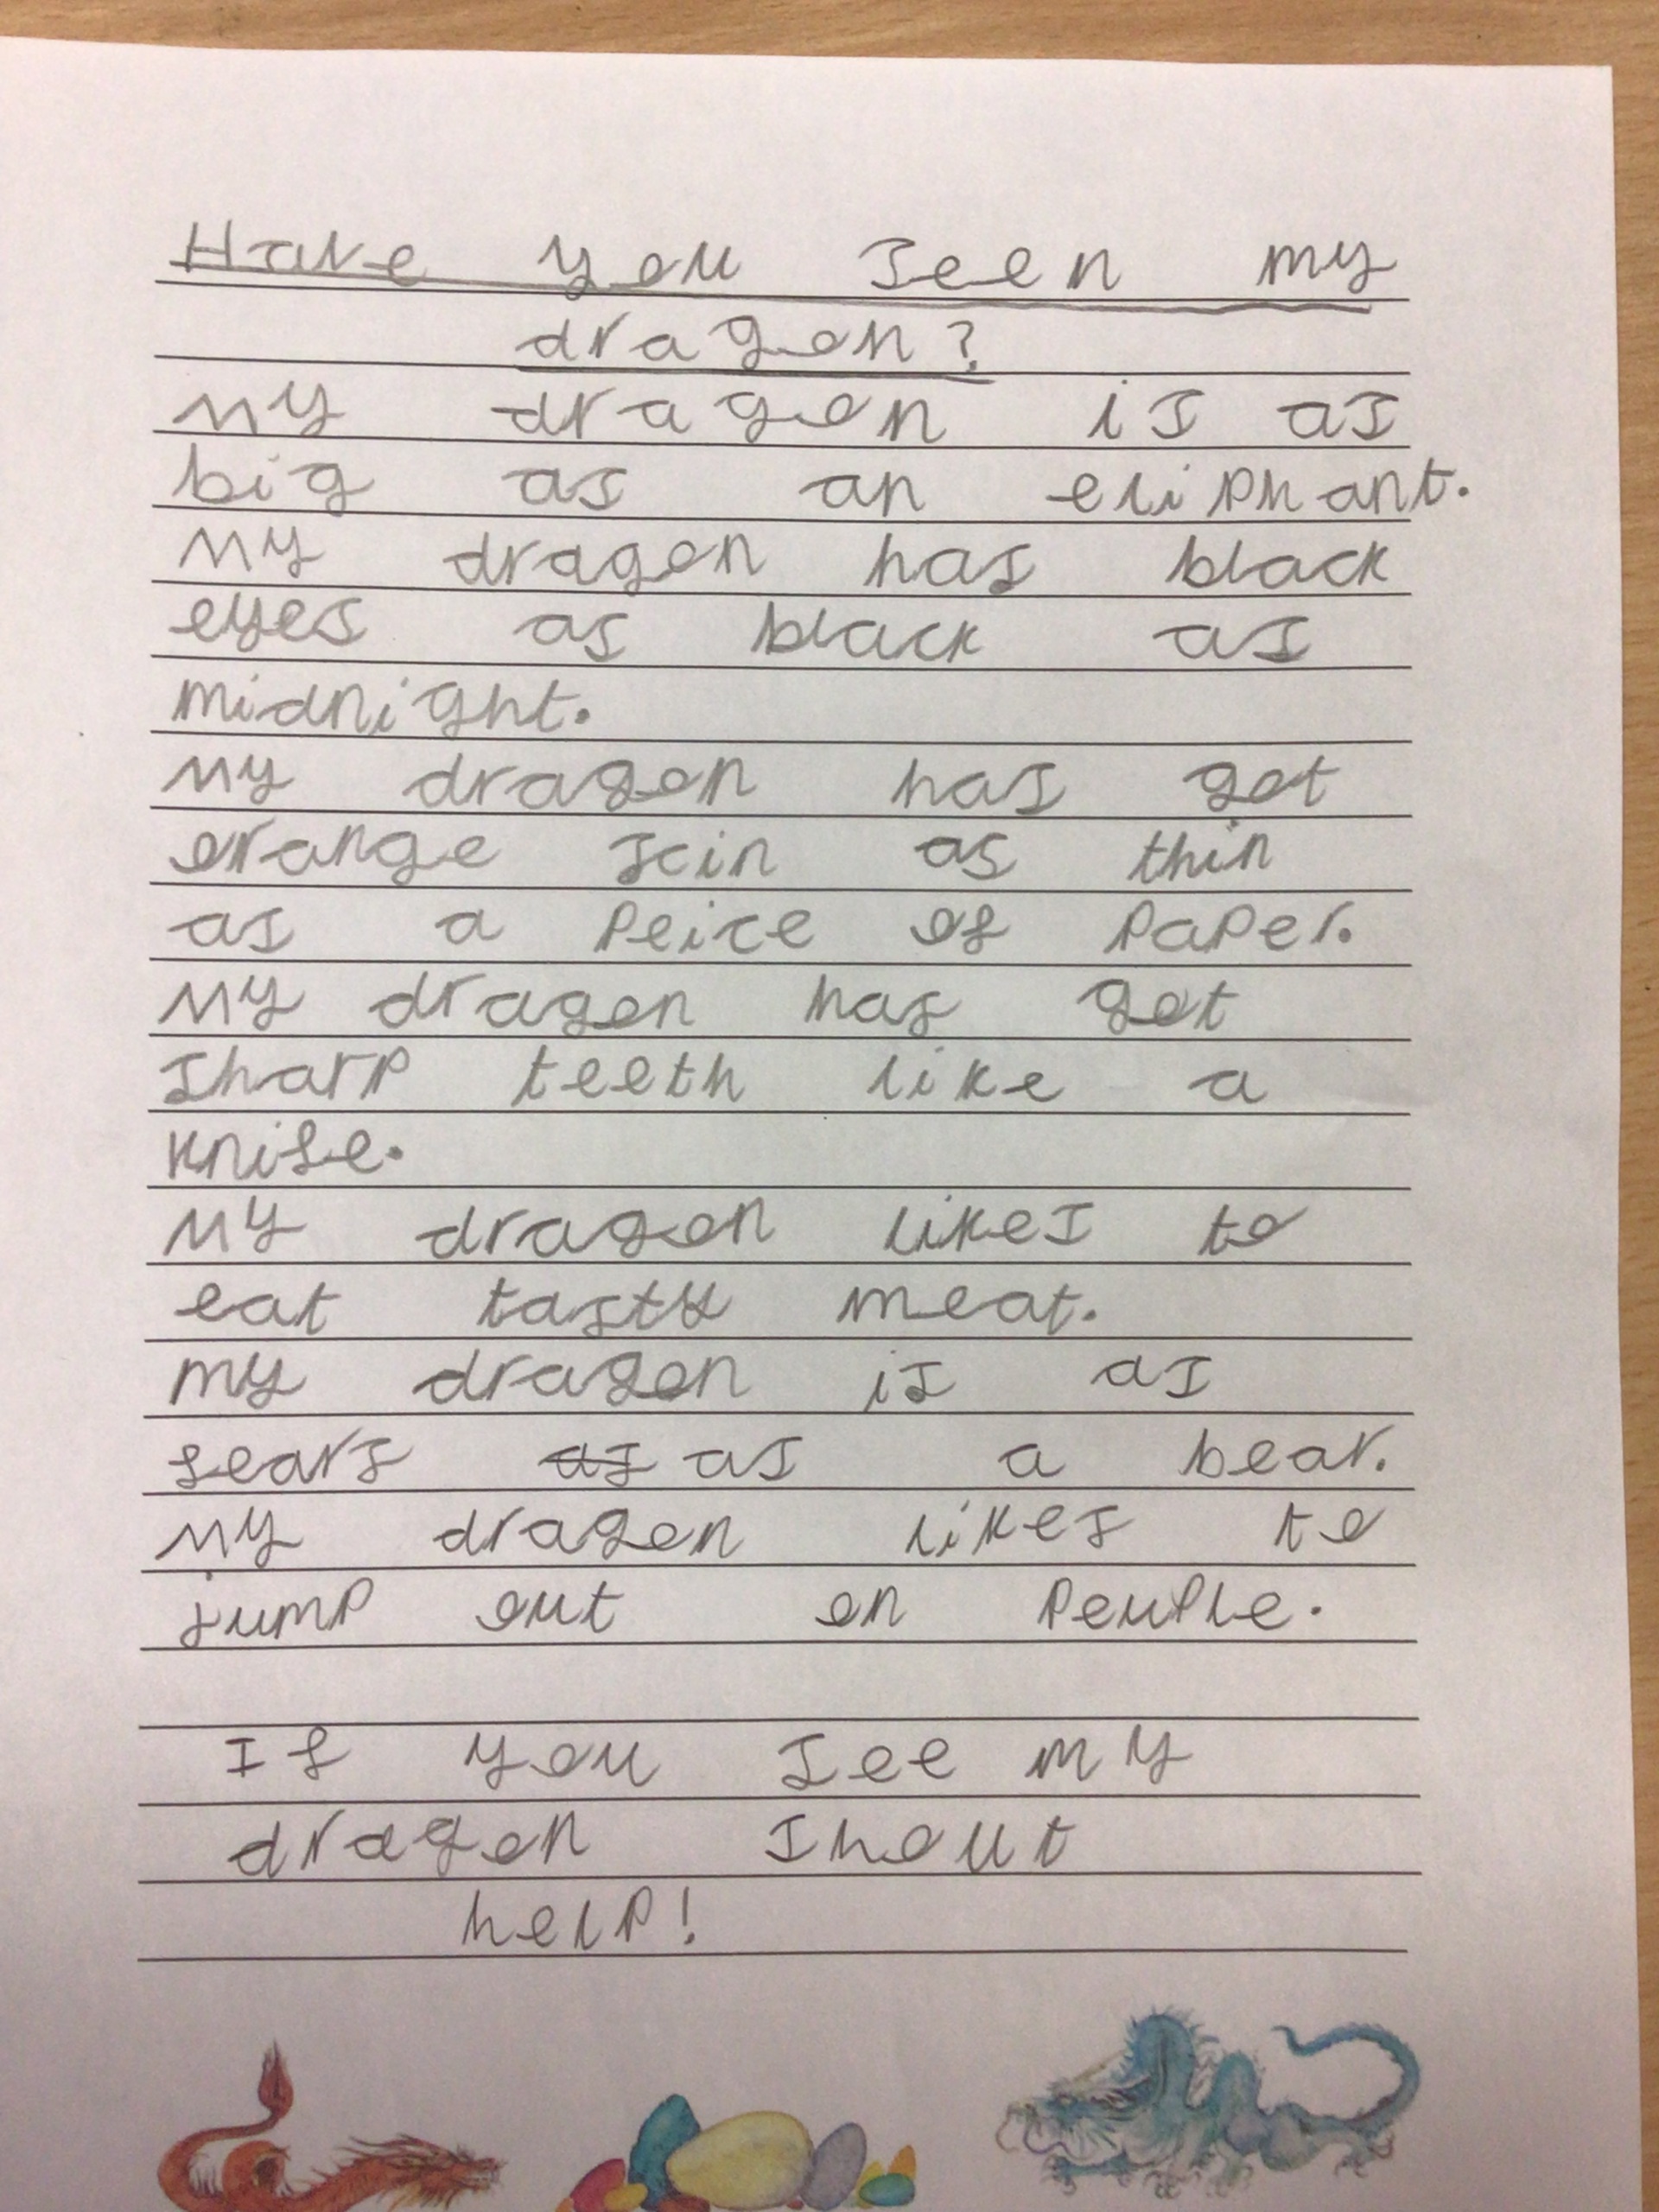 Have you seen my
dragon?
My dragon is as
big as an eliphant.
My dragon has black
eyes as black as
midnight.
My dragon has got
orange scin as thin
as a peice of paper.
My dragon has got
sharp teeth like a
knife.
My dragon likes to
eat tasty meat.
My dragon is as
fears as as a bear.
My dragon likes to
jump out on peuple.
If you see my
dragon shout
help!